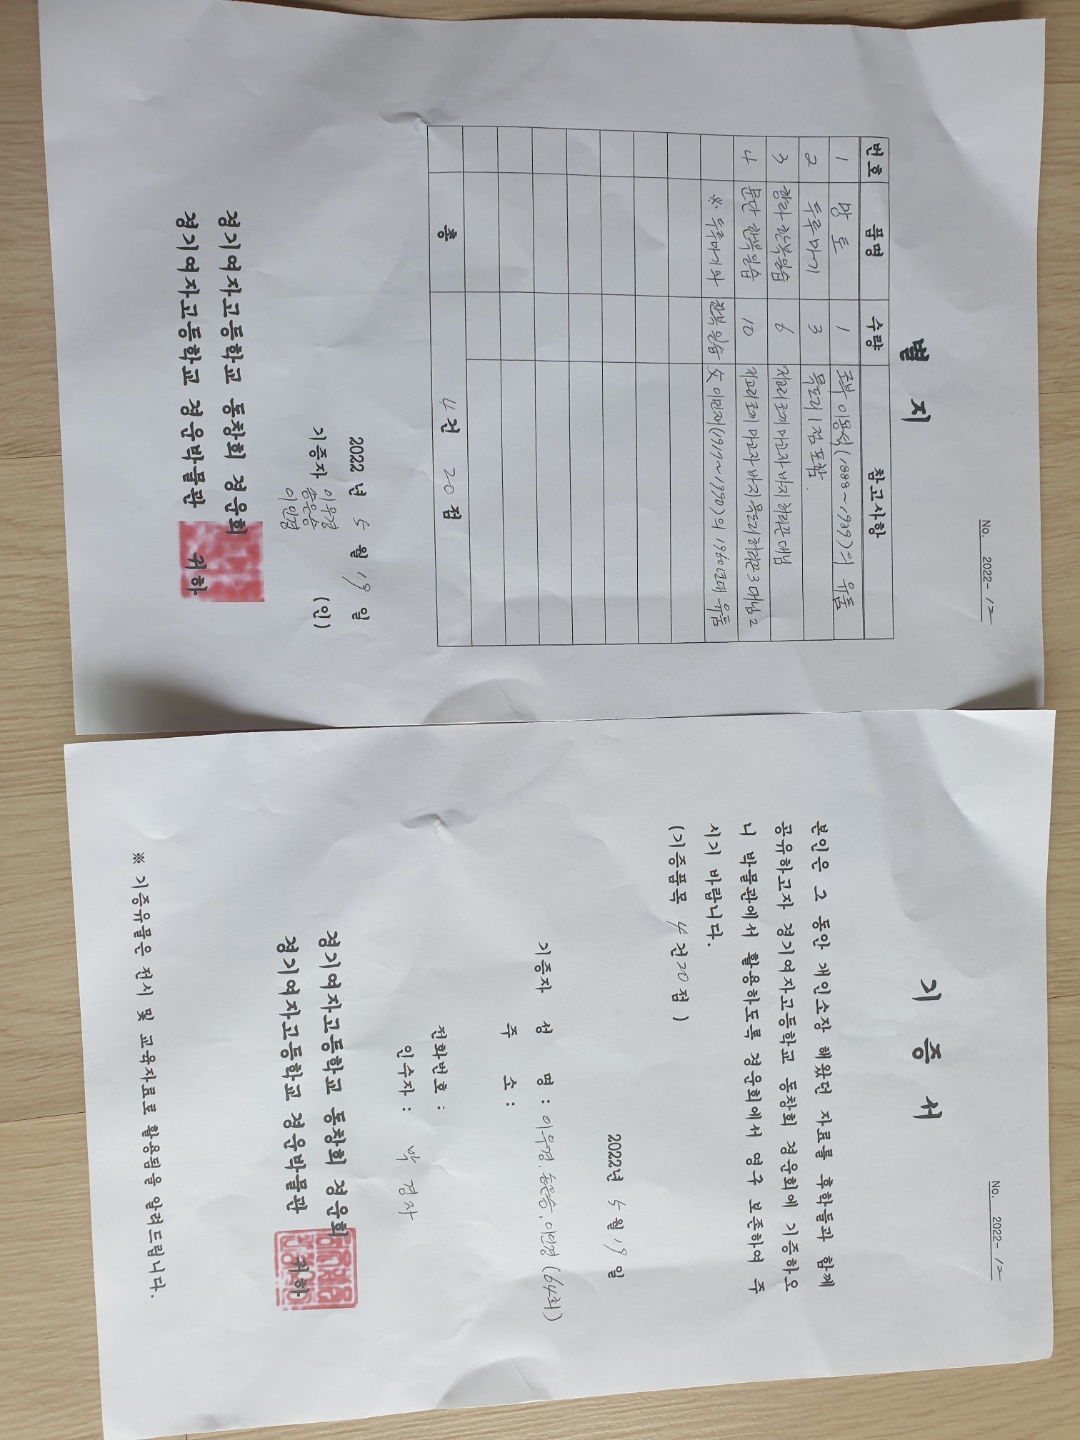 No. 2022-12
별 지
번호 품명 수량 참고사항
1 망토 1 조부 이용석(1888~1939)의 유품
2 두루마기 3 목도리 1점 포함.
3 항라 한복일습 6 저고리 조끼 마고자 바지 허리끈 대님
4 문단 한복일습 10 저고리 조끼 마고자 바지 목도리 허리끈3 대님2
※ 두루마기와 한복 일습 父 이민재(1917~1990)의 1960년대 유품
총 4건 20점
2022년 5월 19일
기증자 이우경 (인)
송은승
이인경
경기여자고등학교 동창회 경운회
경기여자고등학교 경운박물관 귀하
No. 2022-12
기 증 서
본인은 그 동안 개인소장 해왔던 자료를 후학들과 함께
공유하고자 경기여자고등학교 동창회 경운회에 기증하오
니 박물관에서 활용하도록 경운회에서 영구 보존하여 주
시기 바랍니다.
(기증품목 4건20점)
2022년 5월 19일
기증자 성 명 : 이우경, 송은승, 이인경 (64회)
주 소 :
전화번호 :
인수자 : 박경자
경기여자고등학교 동창회 경운회
경기여자고등학교 경운박물관 귀하
※ 기증유물은 전시 및 교육자료로 활용됨을 알려드립니다.